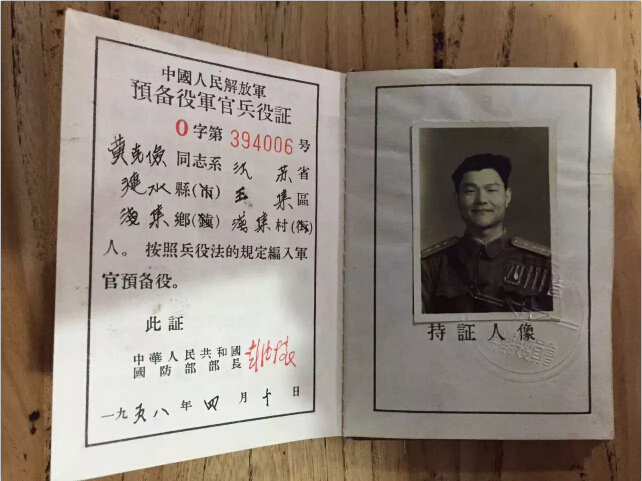 中國人民解放軍
預备役軍官兵役証
0字第 394006 号
黄克俭同志系江苏省
涟水縣(市)五集區
鄉(鎮)集村(街)
人。按照兵役法的規定編入軍
官預备役。
此証
中華人民共和國
國防部部長 彭德怀
一九五八年四月十日
持証人像
四川省